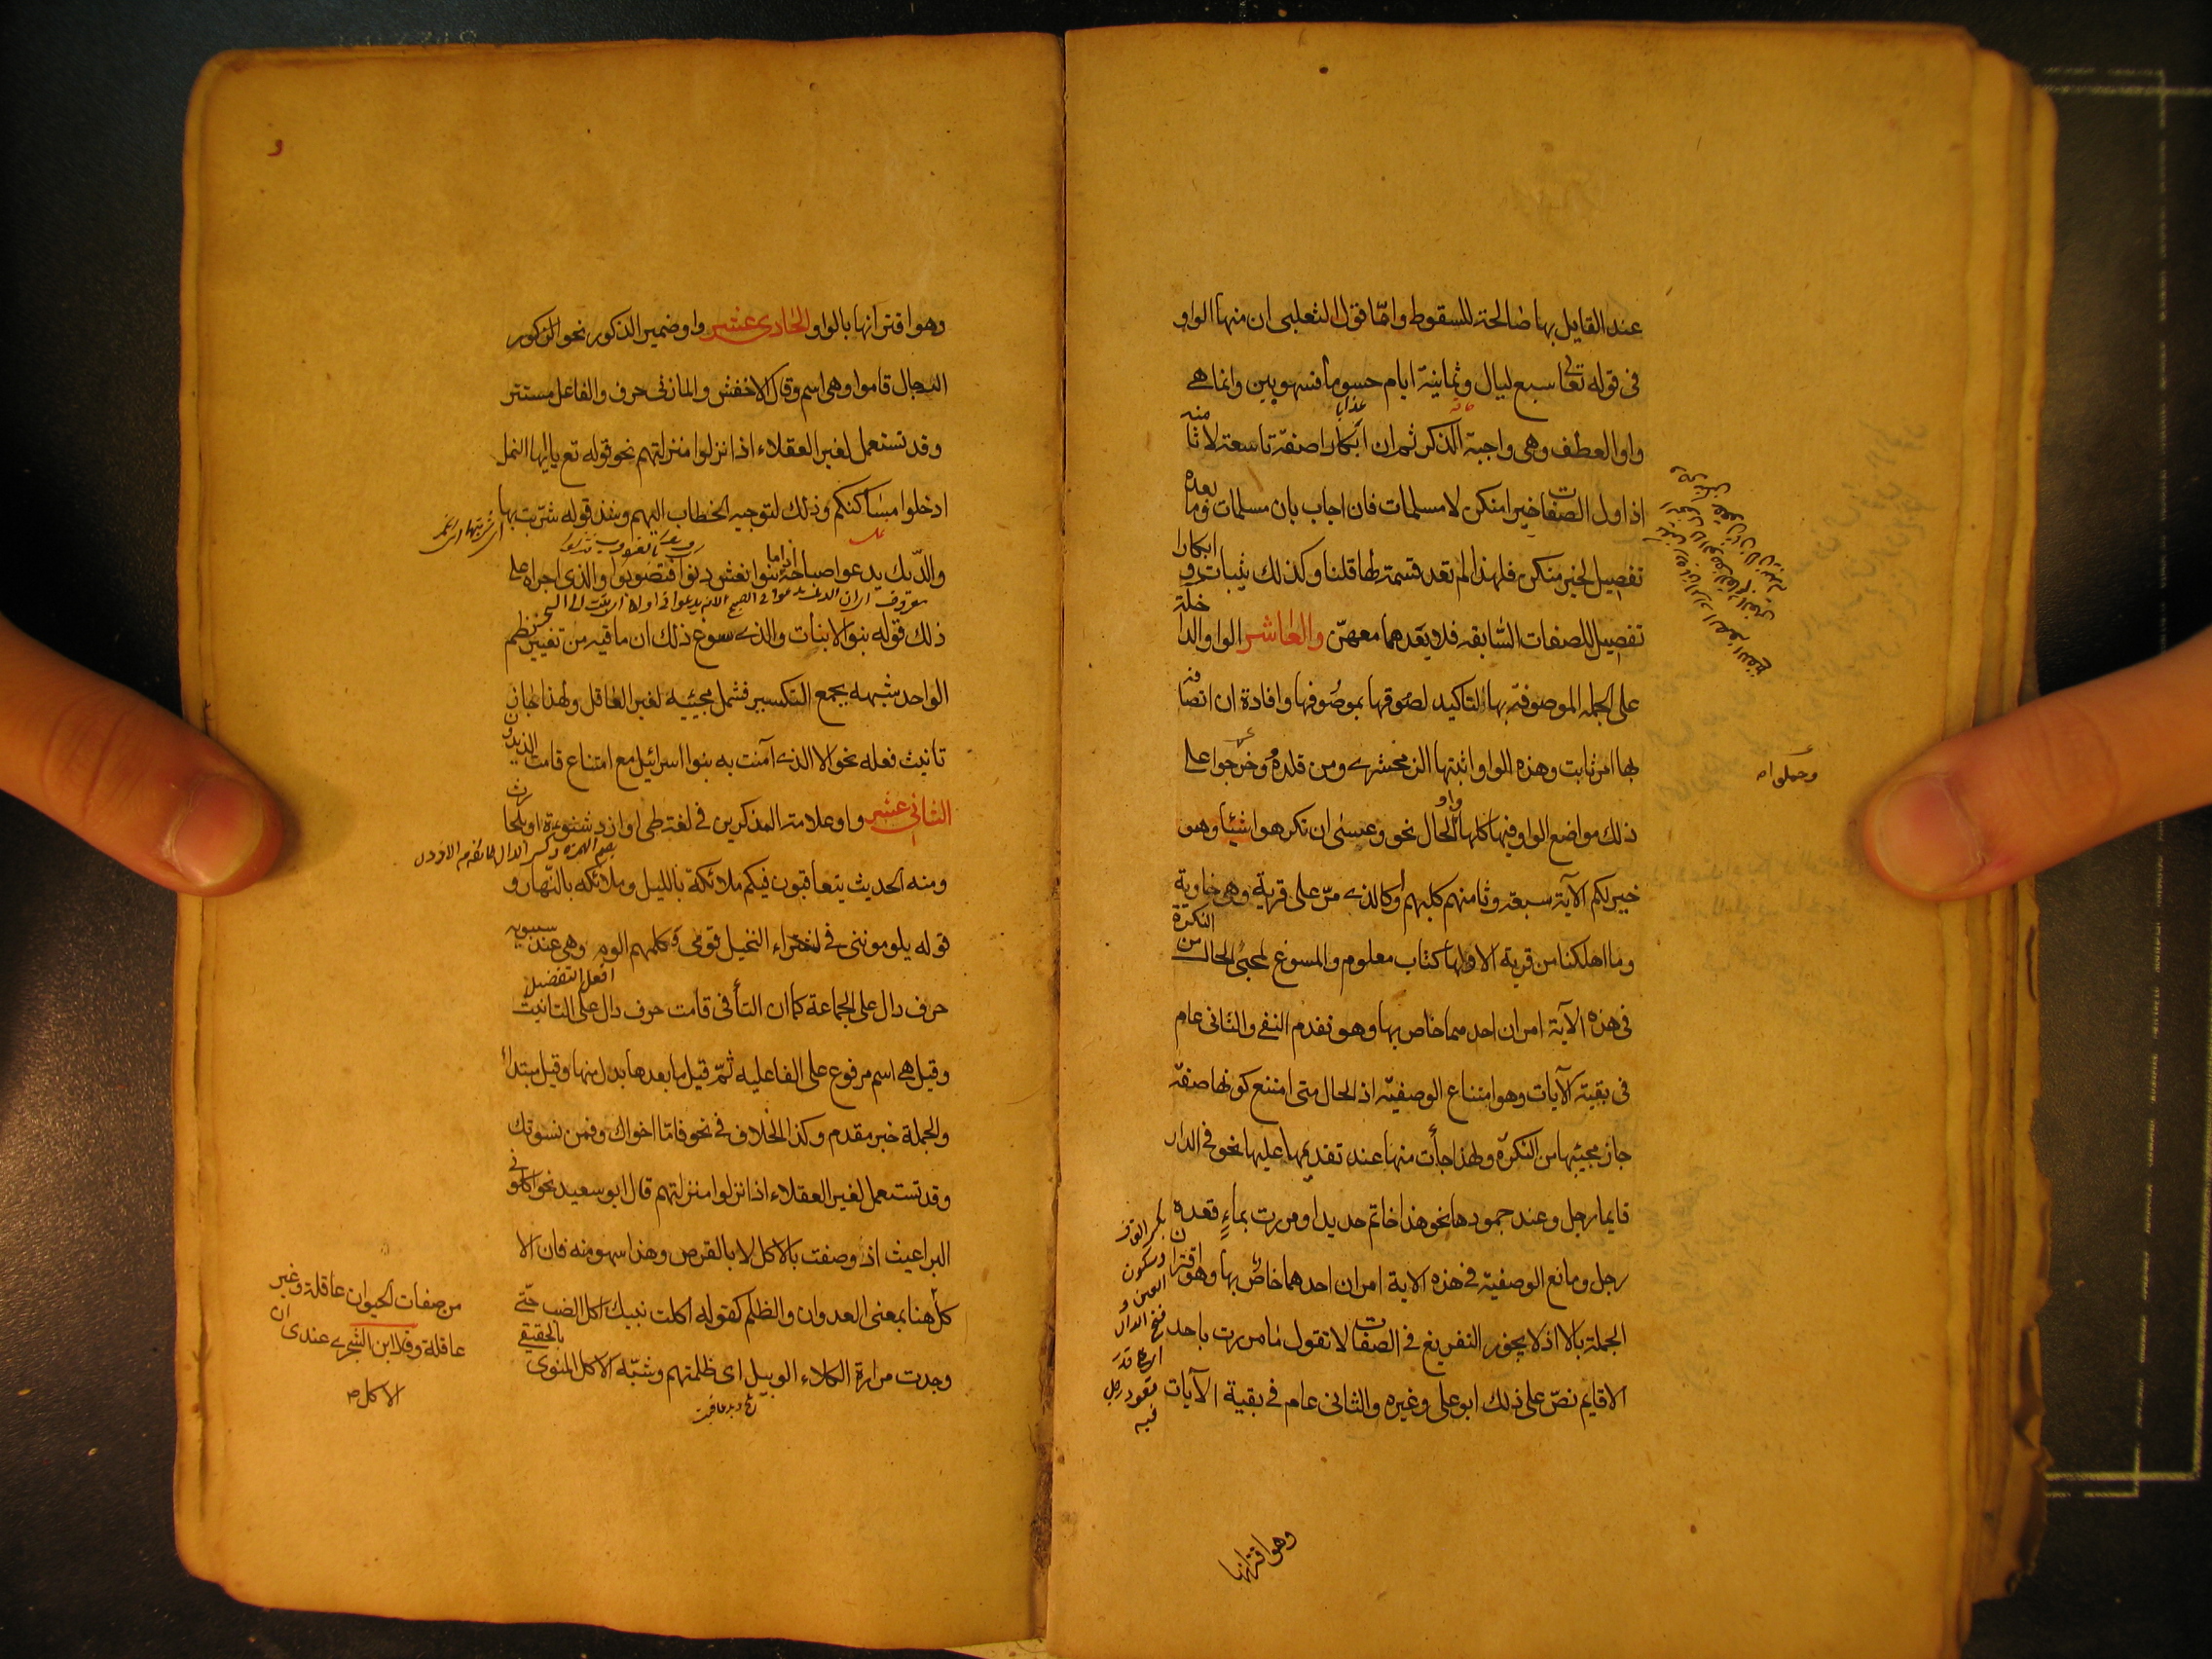 عند القايل بها صالحة للسقوط وامّا قول الثعلبى ان منها الواو
فى قوله تعالى سبع ليال وثمانية ايام حسوما فسهو بين وانما هى
واو العطف وهى واجبة الذكر ثم ان ابكارا صفة تاسعة لا ثامنه
اذ اول الصفات خيرا منكن لا مسلمات فان اجاب بان مسلمات وما بعده
تفصيل لخير منكن فلهذا لم تعد قسيمة لها قلنا وكذلك ثيبات وابكارا
تفصيل للصفات السّابقه فلا يعدهما معهنّ والعاشر الواو الداخلة
على الجملة الموصوفة بها لتاكيد لصوقها بموصوفها وافادة ان اتصافه
بها امر ثابت وهذه الواو اثبتها الزمخشرى ومن قلده وحملوا على
ذلك مواضع الواو فيها كلها واو الحال نحو وعسى ان تكرهوا شيئا وهو
خير لكم الآية سبعة وثامنهم كلبهم او كالذى مرّ على قرية وهى خاوية
وما اهلكنا من قرية الا ولها كتاب معلوم والمسوغ لمجئ الحال من النكرة
فى هذه الآية امران احدهما خاص بها وهو تقدم النفى والثانى عام
فى بقية الآيات وهو امتناع الوصفيّه اذ الحال متى امتنع كونها صفة
جاز مجيئها من النكرة ولهذا جأت منها عند تقديمها عليها نحو فى الدار
قايما رجل وعند جمودها نحو هذا خاتم حديدا ومررت بماءٍ قعدة
رجل ومانع الوصفيّة فى هذه الاية امران احدهما خاص بها وهو اقتران
الجملة بالا اذ لا يجوز التفريغ فى الصفات لا تقول ما مررت باحد
الا قايم نصّ على ذلك ابو على وغيره والثانى عام فى بقية الآيات
بكسر القاف
وسكون
العين و
فتح الدال
وحملوا صح
وهو اقترانها
وهو اقترانها بالواو الحادى عشر واو ضمير الذكور نحو
الرجال قاموا وهى اسم وقال الاخفش والمازنى حرف والفاعل مستتر
وقد تستعمل لغير العقلاء اذا نزلوا منزلتهم نحو قوله تع يا ايها النمل
ادخلوا مساكنكم وذلك لتوجيه الخطاب اليهم وشذ قوله شربت بها
والدّيك يدعو صباحه اذا ما بنوا نعش دنوا فتصوبوا والذى اجراه على
ذلك قوله بنو لا بنات والذى سوغ ذلك ان ما فيه من تغيير نظم
الواحد شبهه بجمع التكسير فسهل مجيئه لغير العاقل ولهذا جاز
تانيث فعله نحو الا الذى آمنت به بنوا اسرائيل مع امتناع قامت الزيدون
الثانى عشر واو علامة المذكرين فى لغة طى او ازد شنوءة او بلحارث
ومنه الحديث يتعاقبون فيكم ملائكة بالليل وملائكة بالنّهار و
قوله يلوموننى فى اشتراء النخيل قومى وكلهم الوم وهى عند سيبويه
حرف دال على الجماعة كما ان التأ فى قامت حرف دال على التانيث
وقيل هى اسم مرفوع على الفاعليه ثمّ قيل ما بعدها بدل منها وقيل مبتداء
والجملة خبر مقدم وكذا الخلاف فى نحو قاما اخواك وقمن نسوتك
وقد تستعمل لغير العقلاء اذا نزلوا منزلتهم قال ابو سعيد نحو اكلونى
البراغيث اذ وصفت بالاكل لا بالقرص وهذا سهو منه فان الا
كل هنا بمعنى العدوان والظلم كقوله اكلت بنيك اكل الضب حتّى
وجدت مرارة الكلاء الوبيل اى ظلمتهم وشبّه الاكل المنوى بالحقيقى
افعل التفضيل
من صفات الحيوان عاقلة وغير
عاقلة وقال ابن الشجرى عندى ان
الاكل صح